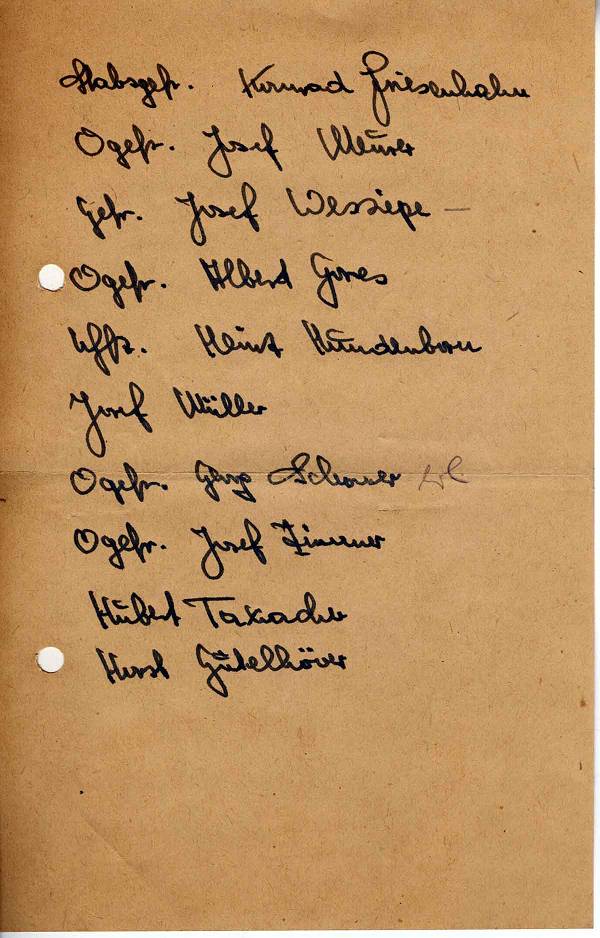 Stabsgefr. Konrad Griesenhahn
Ogefr. Josef Meurer
Gefr. Josef Wessiepe –
Ogefr. Albert Gores
Uffz. Heinz Hundenborn
Josef Müller
Ogefr. Georg Schoner
Ogefr. Josef Zimmer
Hubert Taxacher
Horst Gütelhöver